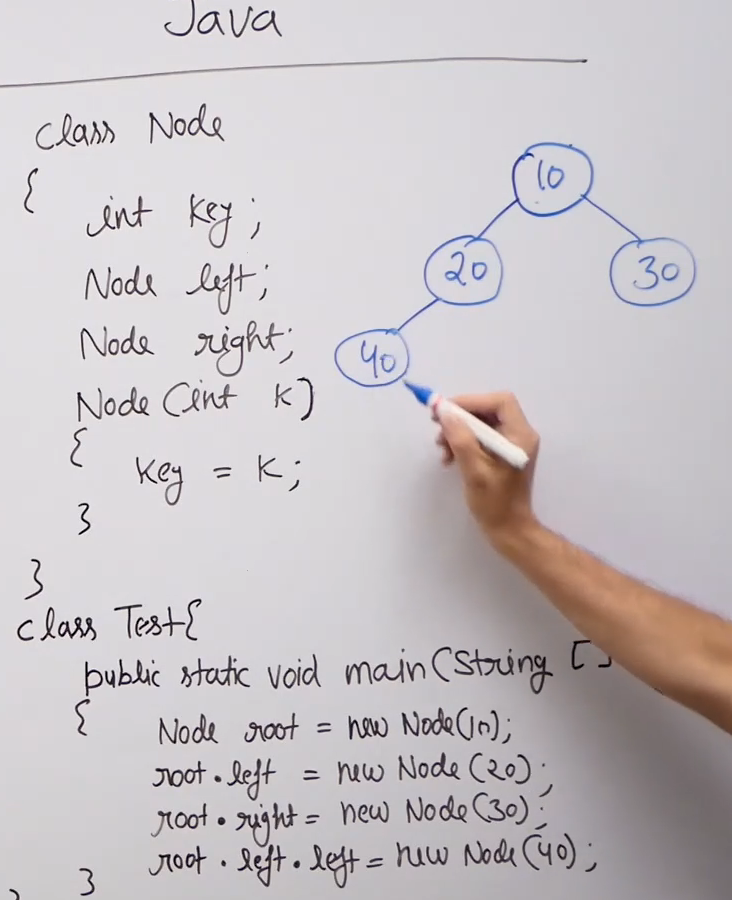 Java
class Node
{
int key;
Node left;
Node right;
Node (int k)
{
key = k;
}
}
class Test{
public static void main(String []
{
Node root = new Node(10);
root.left = new Node(20);
root.right = new Node(30);
root.left.left = new Node(40);
}
}
10
20
30
40